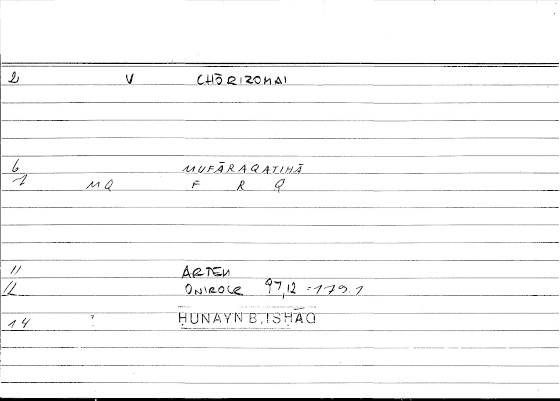 2 V CHŌRIZOMAI
6 MUFĀRAQATIHĀ
7 MQ F R Q
11 ARTEM
12 ONIROCR 97,12 = 179.1
14 ? ḤUNAYN B. ISḤĀQ